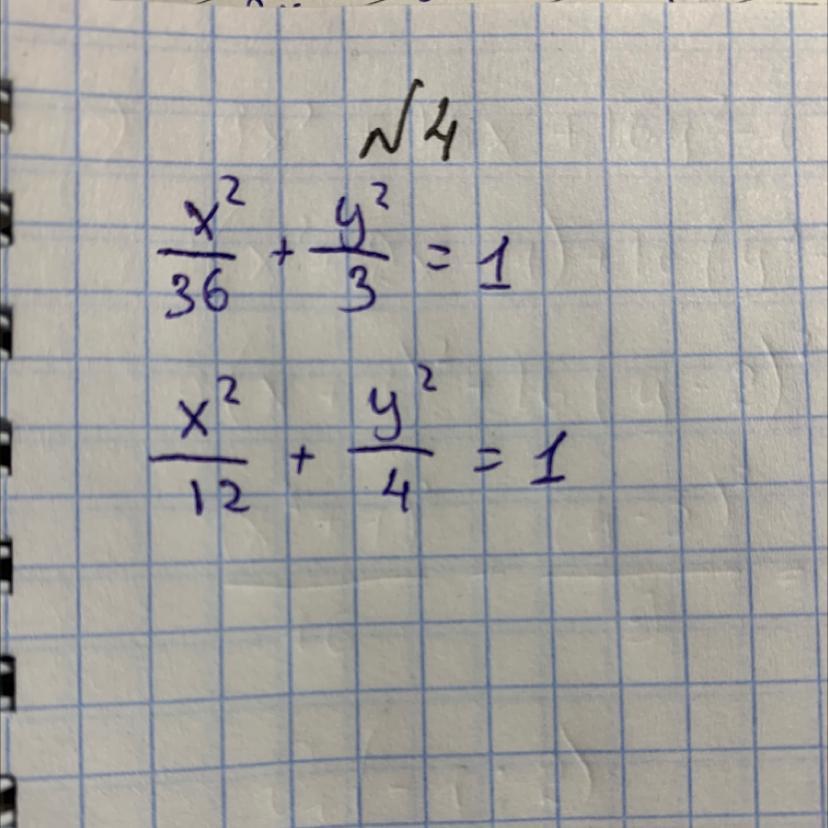 №4
x²/36 + y²/3 = 1
x²/12 + y²/4 = 1